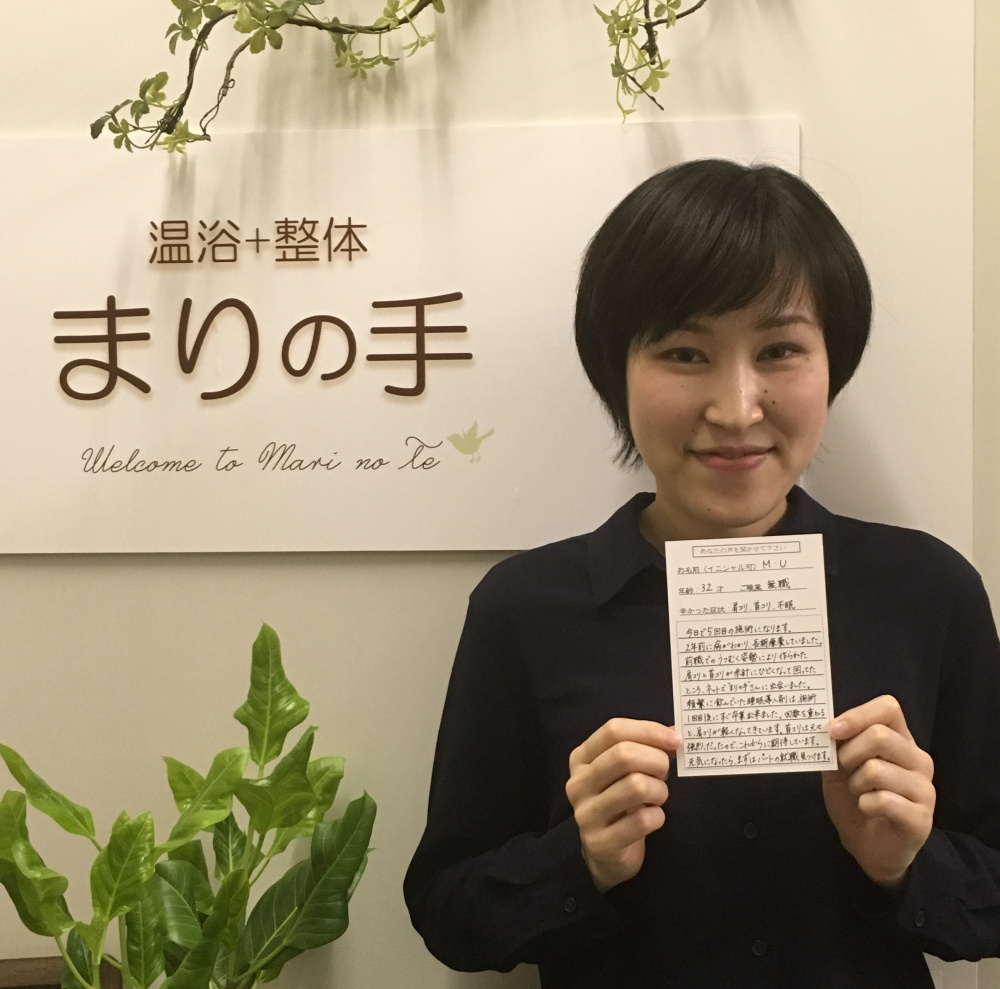 温浴+整体
まりの手
Welcome to Mari no Te
あなたの声を聞かせて下さい
お名前(イニシャル可) M・U
年齢 32 才 ご職業 無職
辛かった症状 肩コリ、首コリ、不眠
今日で5回目の施術になります。
2年前に病がわかり、長期療養していました。
前職でのうつむく姿勢により作られた
肩コリと首コリが余計にひどくなって困ってた
ところ、ネットで"まりの手"さんに出会いました。
頻繁に飲んでいた睡眠導入剤は、施術
1回目後にすぐ卒業出来ました。回数を重ねる
と、肩コリが軽くなってきています。首コリは元々
強烈だったので、これからに期待しています。
元気になったら、まずはパートの就職見つけます。